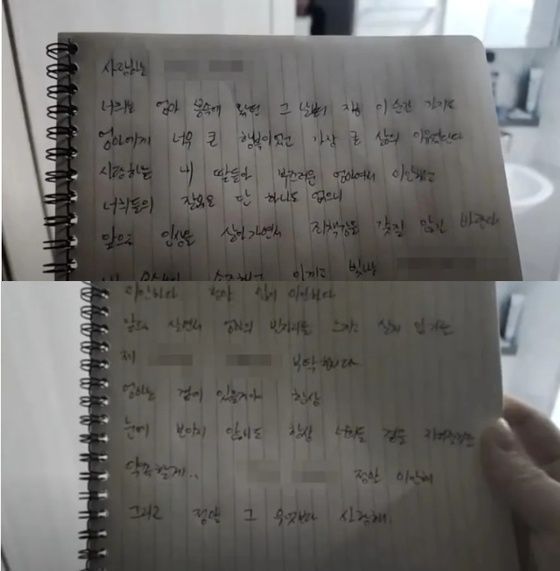 사랑하는
너희는 엄마 뱃속에 왔던 그 날부터 지금 이 순간 까지도
엄마에게 너무 큰 행복이었고 가장 큰 삶의 이유였단다
사랑하는 내 딸들아 부끄러운 엄마여서 미안하고
너희들의 잘못은 단 하나도 없으니
앞으로 인생을 살아가면서 죄책감을 갖질 않길 바란다
소중하고 아끼고 빛날
미안하다 정말 많이 미안하다
앞으로 살면서 엄마의 빈자리를 느끼고 살지 않기를
제 부탁합니다
엄마는 곁에 있을거야 항상
눈에 보이지 않아도 항상 너희들 곁을
약속할게.. 정말 미안해
그리고 정말 그 무엇보다 사랑해.